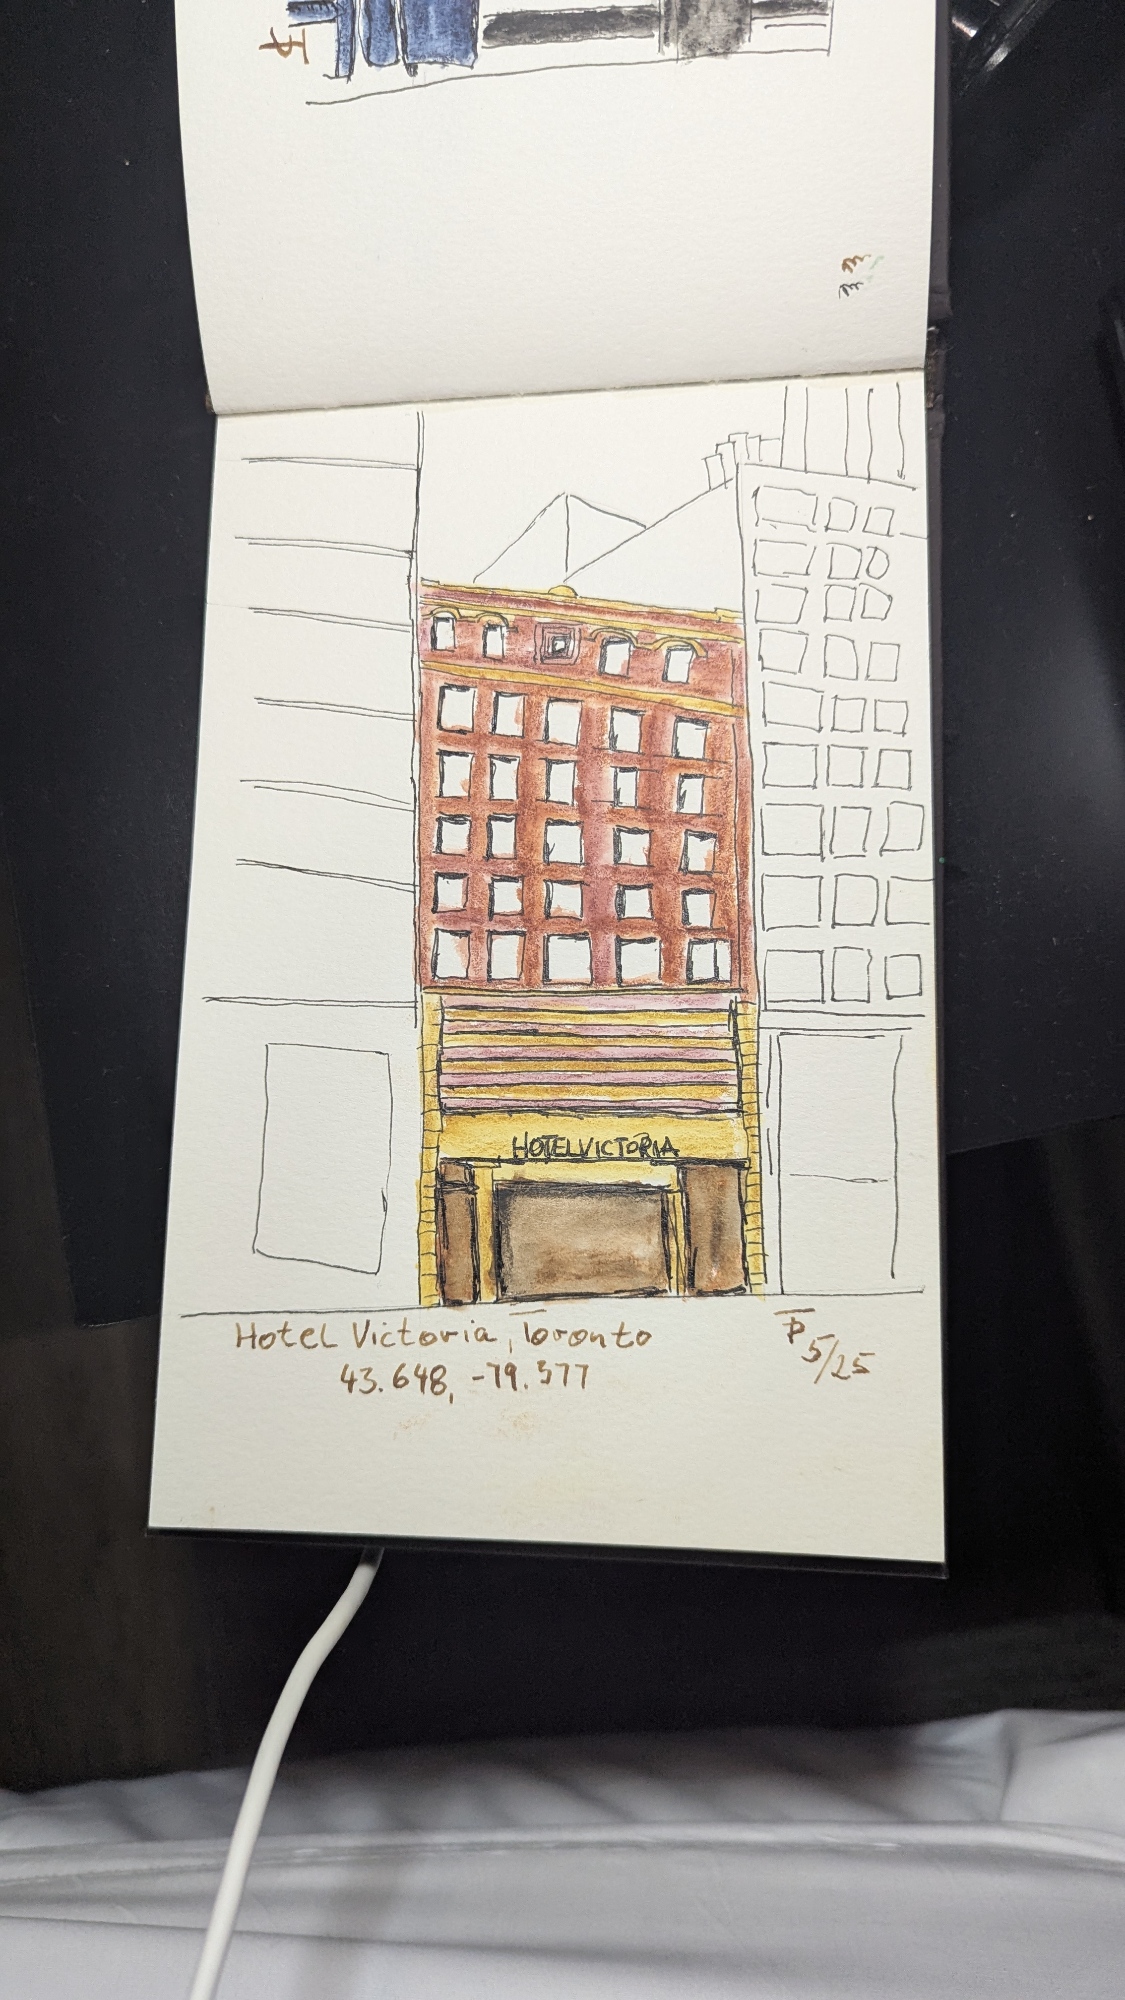 HOTEL VICTORIA
Hotel Victoria, Toronto
43.648, -79.377
5/25